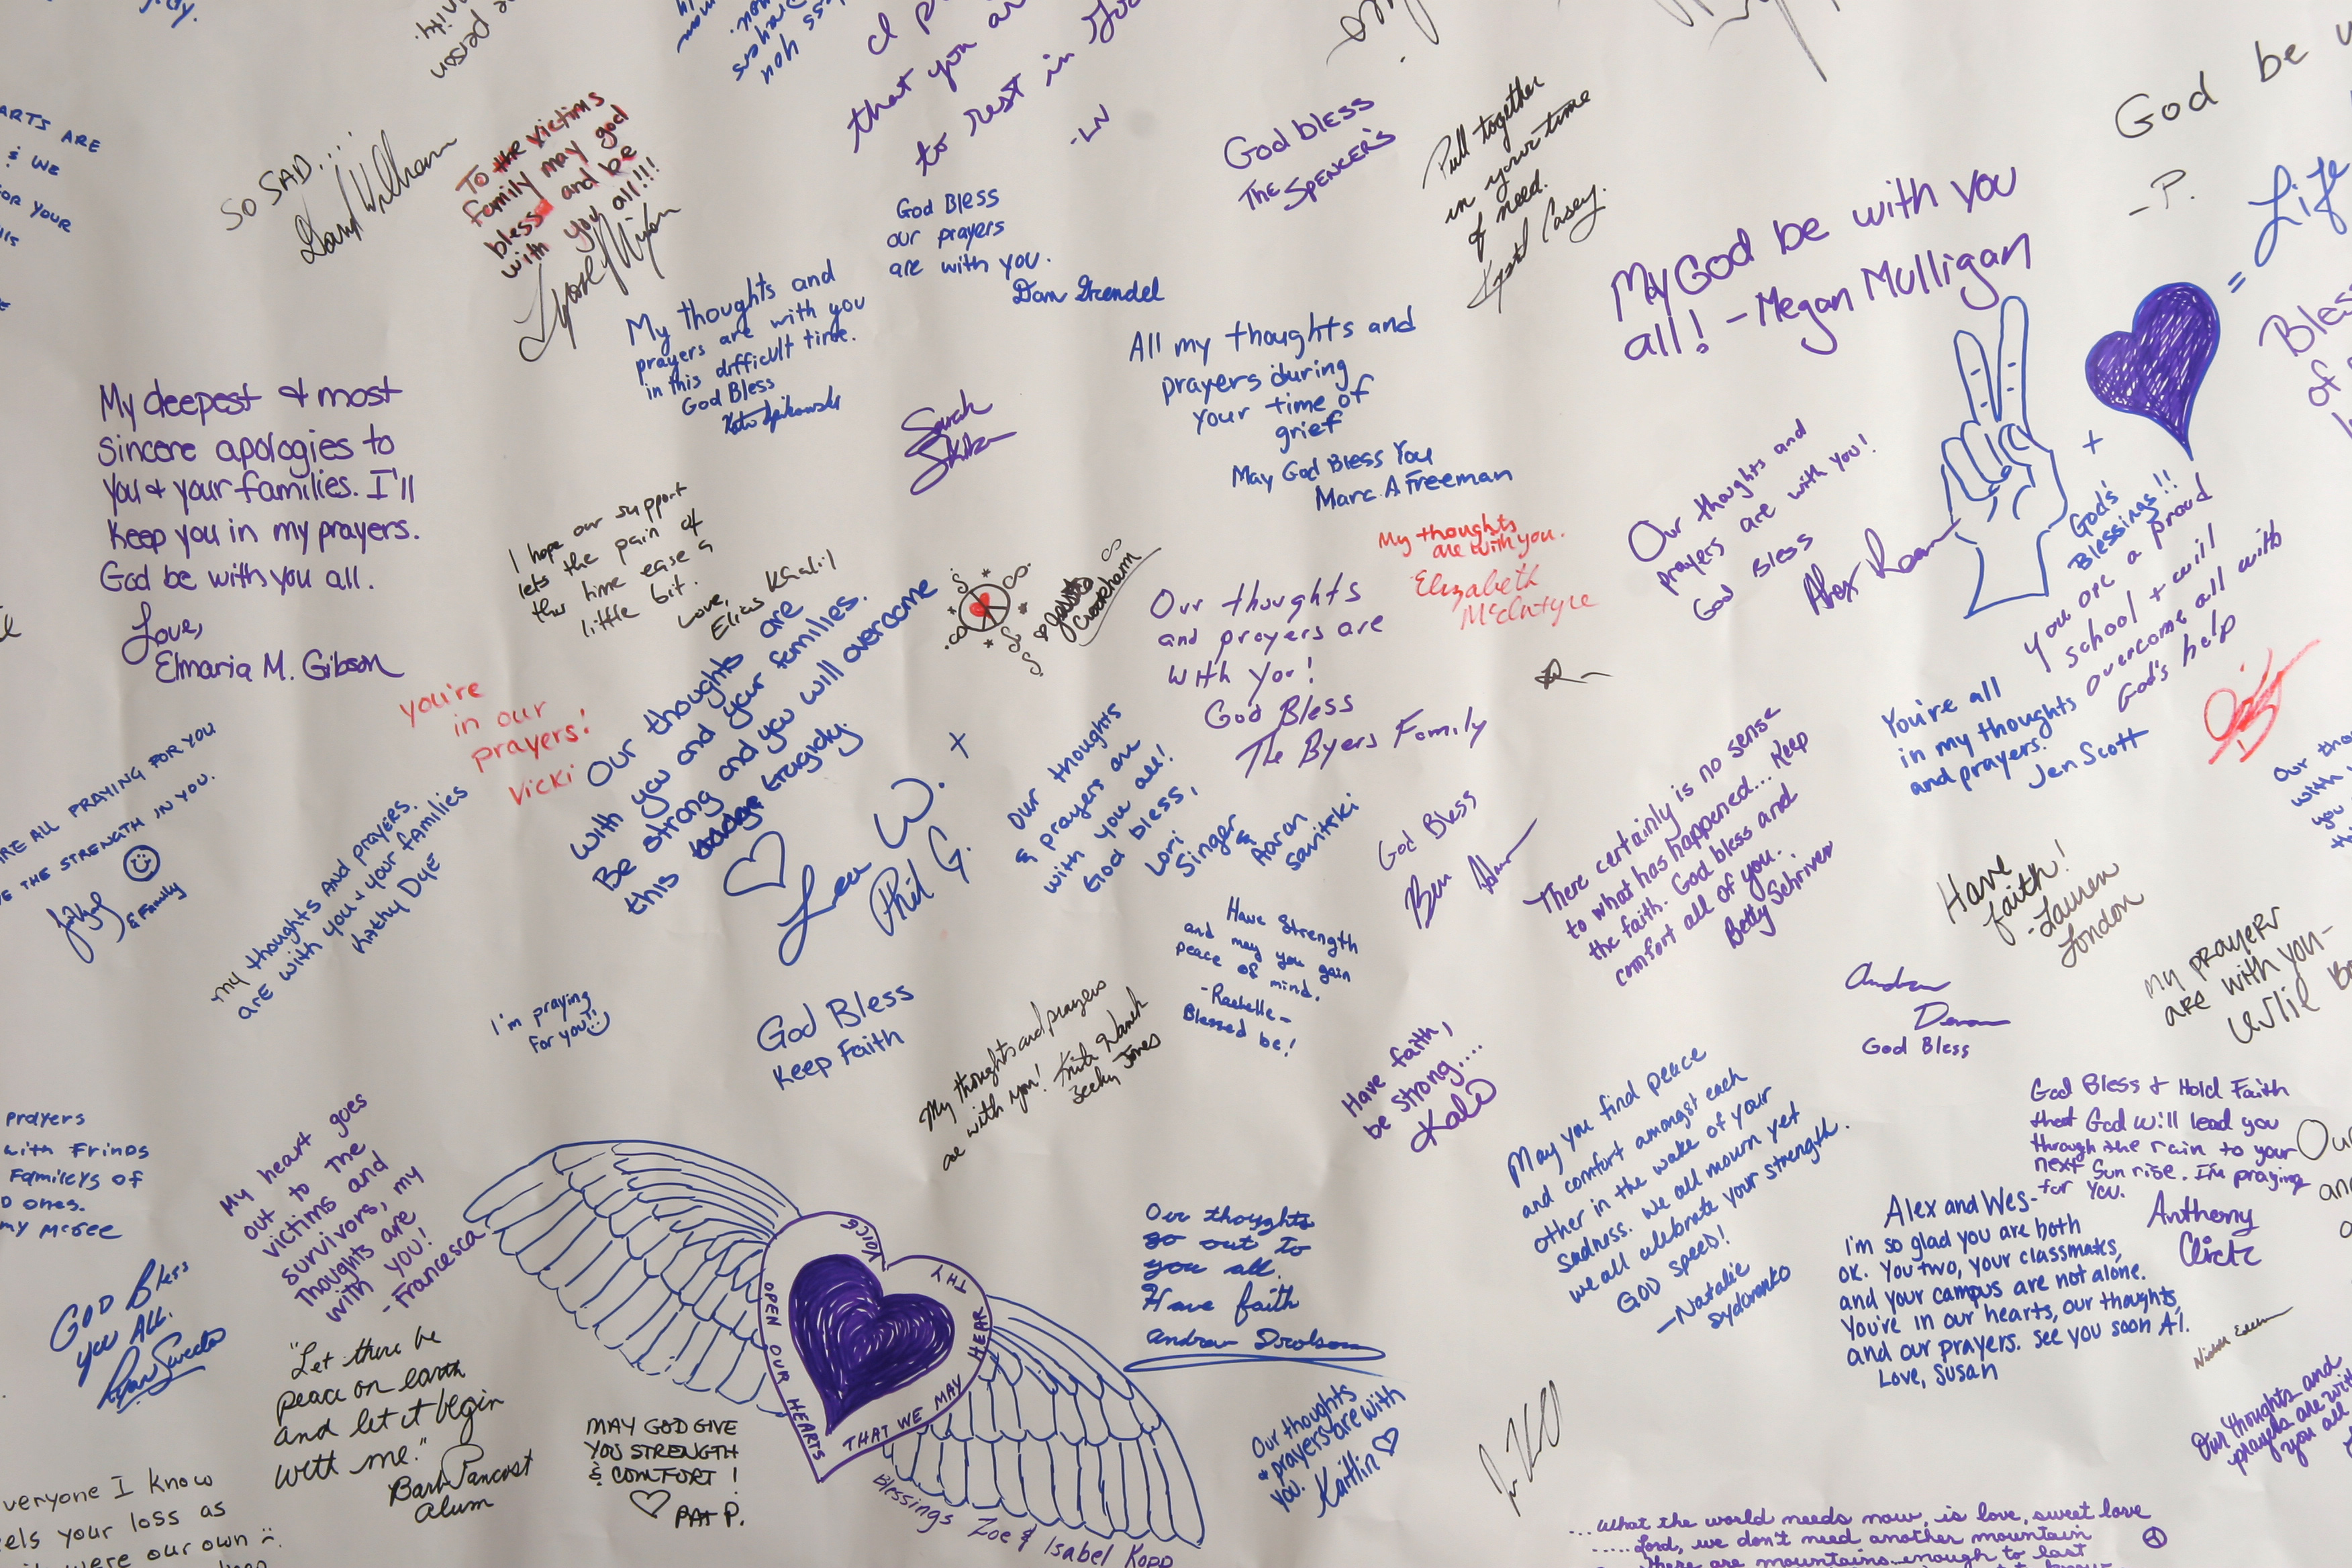 I p
that you ar
to rest in
-LN
God be
-P.
= Life
ARTS ARE
& WE
FOR YOUR
SO SAD...
To the victims
family may god
bless and be
with you all!!!
God Bless
our prayers
are with you.
Dan Grendel
God bless
The Spencer's
Pull together
in your time
of need.
Casey.
May God be with you
all! - Megan Mulligan
My thoughts and
prayers are with you
in this difficult time.
God Bless
All my thoughts and
prayers during
your time of
grief
May God Bless You
Marc A Freeman
My deepest & most
sincere apologies to
you & your families. I'll
keep you in my prayers.
God be with you all.
Love,
Elmaria M. Gibson
Sarah
I hope our support
lets the pain of
this time ease a
little bit.
Love,
Elias Khalil
My thoughts
are with you.
Elizabeth
McIntyre
Our thoughts and
prayers are with you!
God Bless
Alex
+
God's
Blessings!!
You are a proud
school + will
overcome all with
God's help
you're
in our
prayers!
Vicki
Our thoughts are
with you and your families.
Be strong and you will overcome
this tragidy.
W. +
Phil G.
Our thoughts
and prayers are
with you!
God Bless
The Byers Family
Our thoughts
& prayers are
with you all!
God bless,
Lori
Singer &
Aaron
Savitski
God Bless
Ben
There certainly is no sense
to what has happened... Keep
the faith. God bless and
comfort all of you.
Betty Schriver
You're all
in my thoughts
and prayers.
Jen Scott
ARE ALL PRAYING FOR YOU
THE STRENGTH IN YOU.
& Family
my thoughts AND prayers.
are with you & your families
Kathy Dye
Have
faith!
-Lauren
London
My prayers
are with you-
Have Strength
and may you gain
peace of mind.
-Rachelle-
Blessed be!
I'm praying
for you!!
God Bless
Keep Faith
My thoughts and prayers
are with you!
Becky Jones
Have faith,
be strong....
Kale
Andrew
God Bless
prayers
with Frinds
Familers of
D ones.
my McGee
My heart goes
out to the
victims and
survivors, my
thoughts are
with you!
-Francesca
May you find peace
and comfort amongst each
other in the wake of your
sadness. We all mourn yet
we all celebrate your strength.
GOD SPEED!
-Natalie
Sydorenko
God Bless & Hold Faith
that God will lead you
through the rain to your
next Sun rise. I'm praying
for you.
Anthony
Click
Our
Alex and Wes-
I'm so glad you are both
OK. You two, your classmates,
and your campus are not alone.
You're in our hearts, our thoughts,
and our prayers. See you soon Al.
Love, Susan
GOD Bless
you ALL.
Our thoughts
go out to
you all.
Have faith
Andrew
OPEN OUR HEARTS
THAT WE MAY
HEAR
THY
VOICE
Blessings Zoe & Isabel Kopp
"Let there be
peace on earth
and let it begin
with me."
Barb Pancost
alum
MAY GOD GIVE
YOU STRENGTH
& COMFORT!
PAT P.
Our thoughts
& prayers are with
you.
Kaitlin
Our thoughts and
prayers are with
you all
veryone I know
els your loss as
were our own
...What the world needs now, is love, sweet love
.....Lord, we don't need another mountain
there are mountains...enough to last